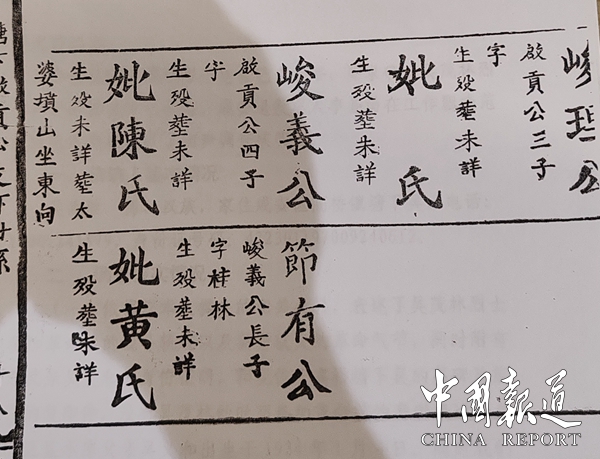 啟貢公三子
字
生殁塟未詳
妣 氏
生殁塟未詳
峻義公
啟貢公四子
字
生殁塟未詳
妣陳氏
生殁未詳塟太
婆墳山坐東向
節有公
峻義公長子
字桂林
生殁塟未詳
妣黄氏
生殁塟未詳
中國報道
CHINA REPORT